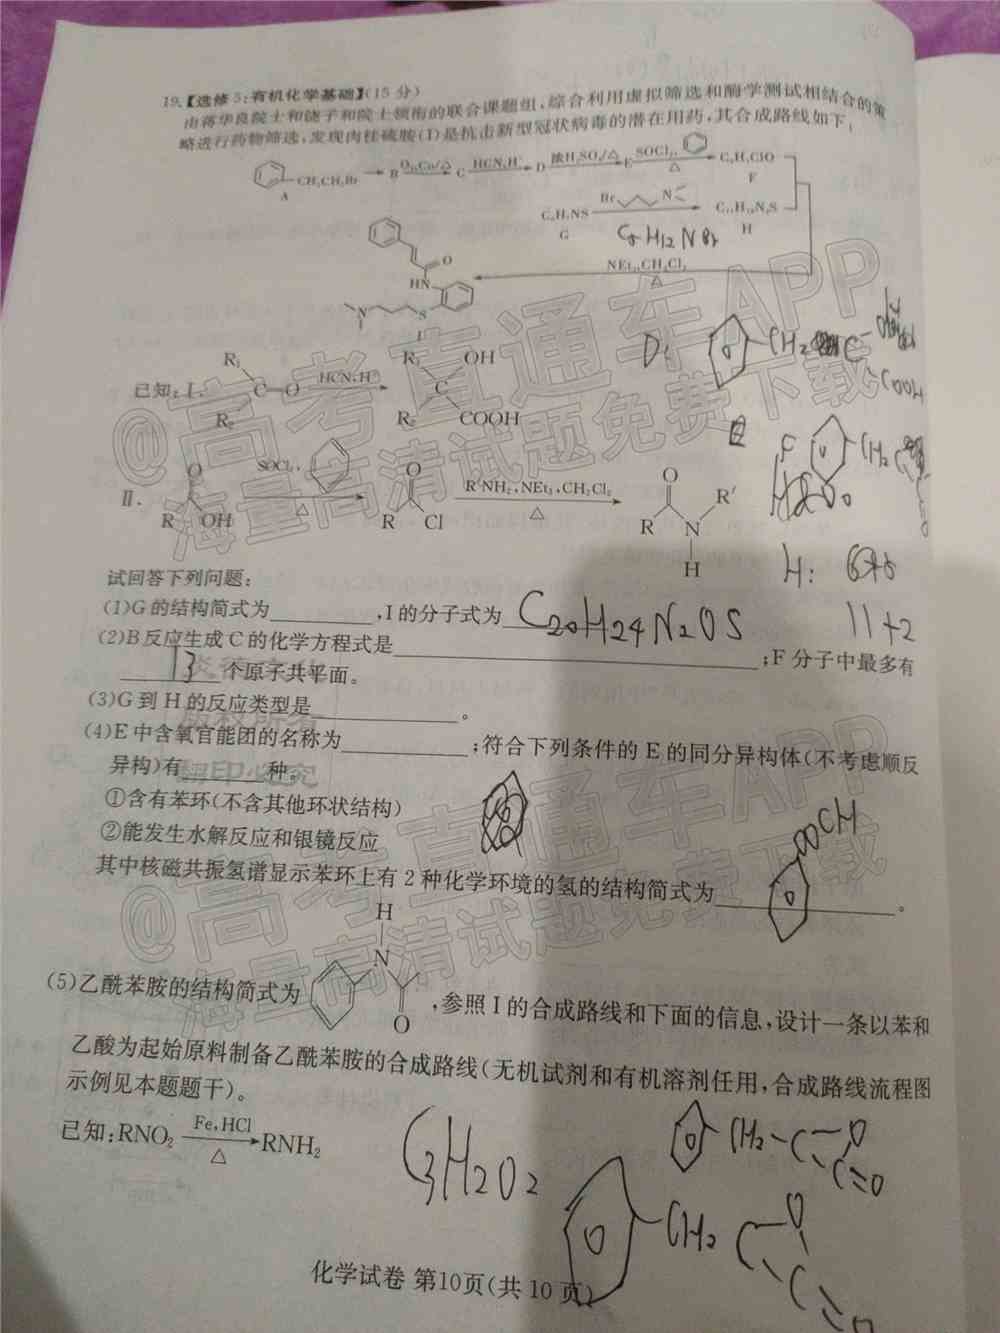 19.【选修5:有机化学基础】(15分)
由蒋华良院士和饶子和院士领衔的联合课题组,综合利用虚拟筛选和酶学测试相结合的策
略进行药物筛选,发现肉桂硫胺(I)是抗击新型冠状病毒的潜在用药,其合成路线如下:
CH₂CH₂Br
A
B
O₂,Cu/△
C
HCN,H⁺
D
浓H₂SO₄/△
E
SOCl₂,
△
C₉H₇ClO
F
C₆H₇NS
G
Br
N
C₁₁H₁₈N₂S
H
C₅H₁₂NBr
NEt₃,CH₂Cl₂
△
O
HN
N
S
I
D:
CH₂
C
COOH
已知:Ⅰ.
R₁
C
O
R₂
HCN,H⁺
R₁
OH
C
R₂
COOH
F
CH₂
Ⅱ.
O
R
OH
SOCl₂,
△
O
R
Cl
R′NH₂,NEt₃,CH₂Cl₂
△
O
R′
R
N
H
H:
11+2
试回答下列问题:
(1)G的结构简式为________,I的分子式为 C₂₀H₂₄N₂OS
(2)B反应生成C的化学方程式是________;F分子中最多有
13 个原子共平面。
(3)G到H的反应类型是________。
(4)E中含氧官能团的名称为________;符合下列条件的E的同分异构体(不考虑顺反
异构)有________种。
①含有苯环(不含其他环状结构)
②能发生水解反应和银镜反应
OOCH
其中核磁共振氢谱显示苯环上有2种化学环境的氢的结构简式为________。
H
N
O
(5)乙酰苯胺的结构简式为
,参照I的合成路线和下面的信息,设计一条以苯和
乙酸为起始原料制备乙酰苯胺的合成路线(无机试剂和有机溶剂任用,合成路线流程图
示例见本题题干)。
已知:RNO₂
Fe,HCl
△
RNH₂
C₃H₂O₂
CH₂-C
O
C=O
CH₂
C
O
C
O
化学试卷 第10页(共10页)
炎德文化
版权所有
翻印必究
@高考直通车APP
海量高清试题免费下载
@高考直通车APP
海量高清试题免费下载